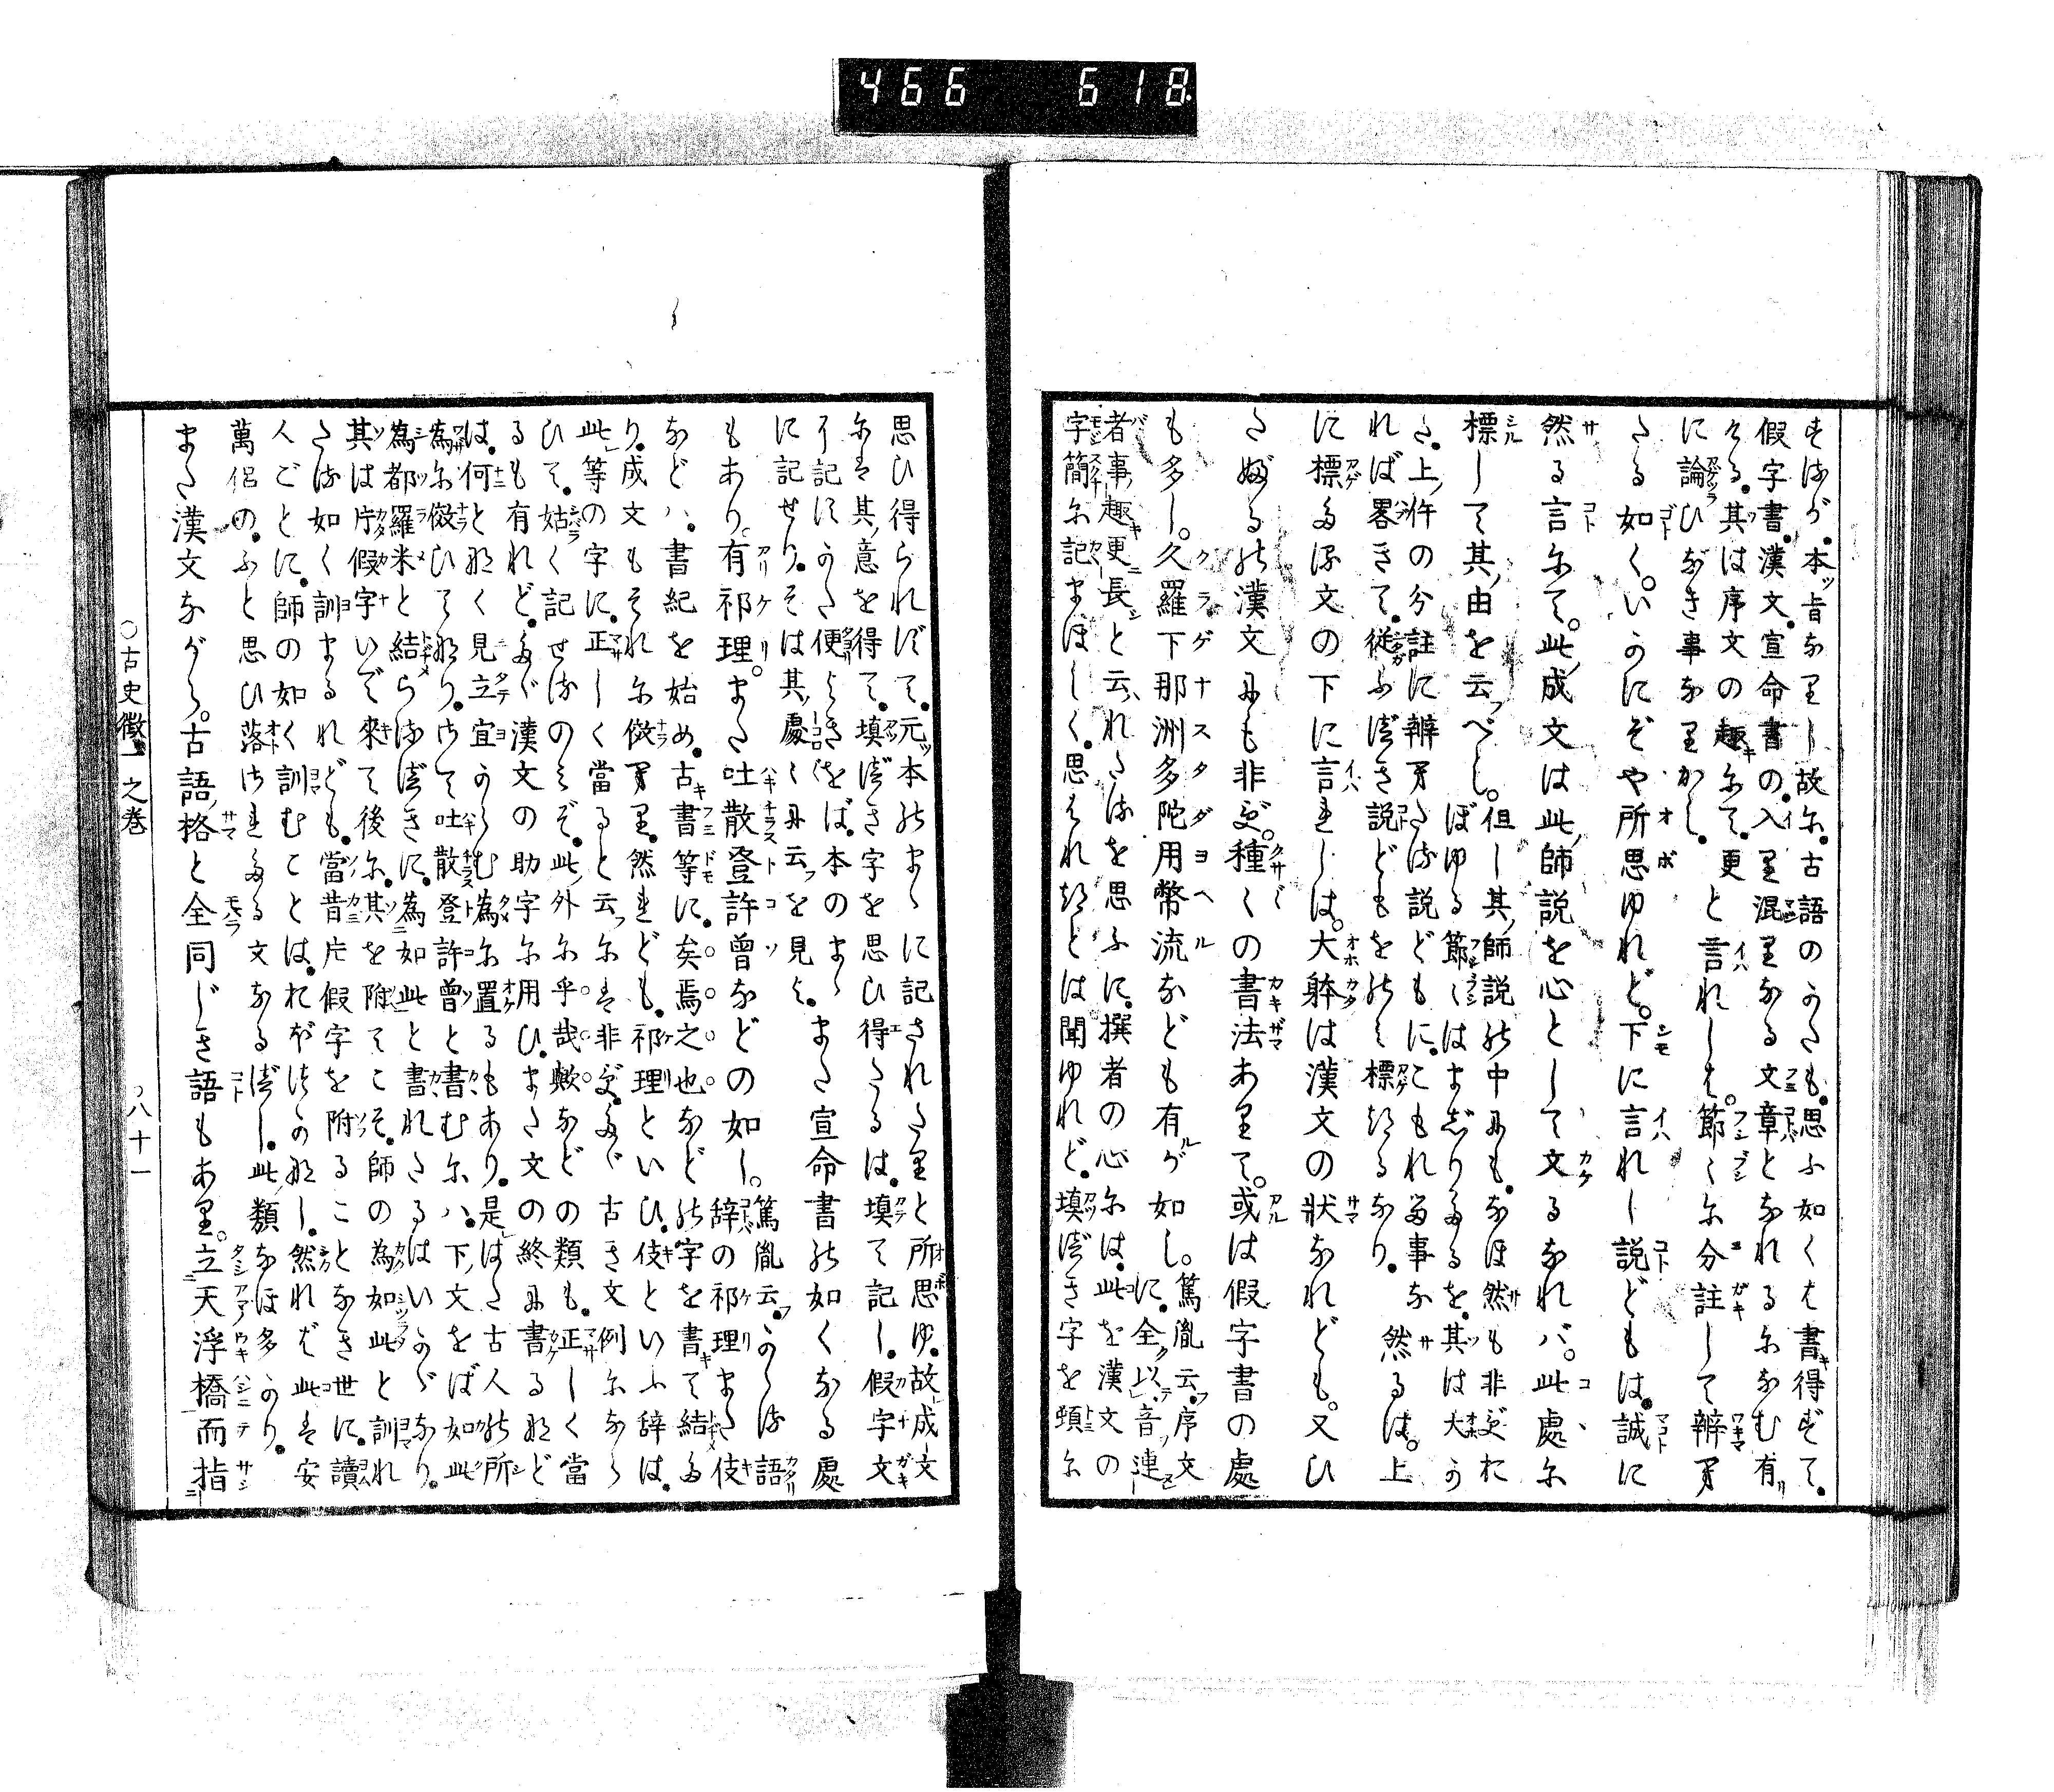 466 618
すはが。本ッ旨なりし故に。古語のかたも。思ふ如くは書得ずて。
假字書。漢文。宣命書の。入り混りなる文章となれるになむ有
ける。其は序文の趣にて。更
に論ひなき事なりかし。と言れしは。節々に分註して辨へ
たる如く。いかにぞや所思ゆれど。下に言れし說どもは。誠に
然る言にて。此ノ成文は此ノ師說を心として文るなれバ。此處に
標して其ノ由を云べし。但し其ノ師說の中にも。なほ然も非ずお
ぼゆる節々はまじりたるを。其は大か
た。上ノ件の分註に辨へたる說どもに。こもれる事な
れば畧きて。從ふべき說どもをのみ標たるなり。然るは。上
に標たる文の下に言れしは。大躰は漢文の狀なれども。又ひ
たぶるの漢文にも非ず。種々の書法ありて。或は假字書の處
も多し。久羅下那洲多陀用幣流なども有が如し。篤胤云。序文
に。全以音連
者事趣更長と云れたるを思ふに。撰者の心には。此を漢文の
字簡に記まほしく。思はれたとは聞ゆれど。填べき字を頓に
思ひ得られずて。元ッ本のまゝに記されたりと所思ゆ。故成文
には其ノ意を得て。填べき字を思ひ得たるは。填て記し。假字文
に記してかた便よきをば。本のまゝ
に記せり。そは其ノ處々に云フを見よ。また宣命書の如くなる處
もあり。有祁理。また吐散登許曾などの如し。篤胤云。かゝる語
辭の祁理また伎
などハ。書紀を始め。古書等に。矣焉之也など の字を書て結め
り。成文もそれに傚へり。然れども。祁理といひ。伎といふ辭は。
此等の字に。正しく當ると云フには非ず。たゞ古き文例にならひ
ひて。姑く記せるのみぞ。此ノ外に乎。哉。歟などの類も。正しく當
るも有れど。たゞ漢文の助字に用ひ。また文の終に書るなど
は。何となく見立宜からむ為に置るもあり。是はた古人の所
為に傚ひてなり。さて吐散登許曾と書むにハ。下ノ文をば如此
為都羅米と結らるべきに。為如此と書れたるはいかゞなり。
其は片假字いで來て後に。其を除てこそ。師の為如此と訓れ
たる如く訓まるれども。當昔片假字を附ることなき世に。讀
人ごとに。師の如く訓むことは。れがはかなし。然れば此は安
萬侶の。ふと思ひ落されたる文なるべし。此ノ類なほ多かり。
また漢文ながら。古語ノ格と全同じき語もあり。立天浮橋而指
○古史徵一之卷
○八十一